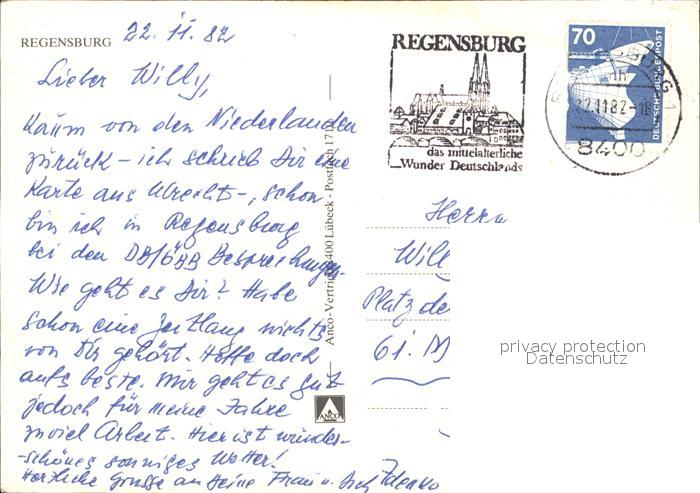 REGENSBURG 22. 11. 82
Lieber Willy,
kaum von den Niederlanden
zurück – ich schrieb Dir eine
Karte aus Utrecht –, schon
bin ich in Regensburg
bei den DB/ÖBB Besprechungen.
Wie geht es Dir? Habe
schon eine Zeitlang nichts
von Dir gehört. Hoffe doch
aufs beste. Mir geht es gut
jedoch für meine Jahre
zuviel Arbeit. Hier ist wunder-
-schönes sonniges Wetter!
Herzliche Grüsse an Deine Frau u. Dich Zdenko
Anco-Vertrieb 2400 Lübeck - Postfach 1712
ANCO
REGENSBURG
das mittelalterliche
Wunder Deutschlands
70
DEUTSCHE BUNDESPOST
22.11.82-18
8400
Herrn
Will
Platz de
61.
privacy protection
Datenschutz